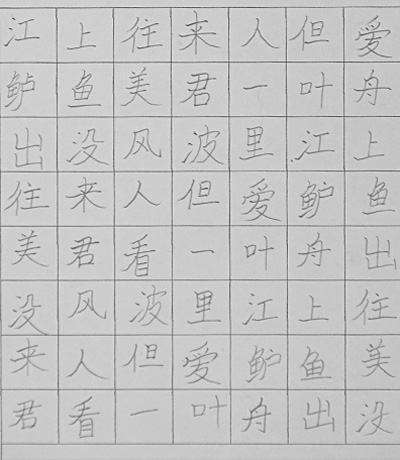 江上往来人但爱
鲈鱼美君一叶舟
出没风波里江上
往来人但爱鲈鱼
美君看一叶舟出
没风波里江上往
来人但爱鲈鱼美
君看一叶舟出没